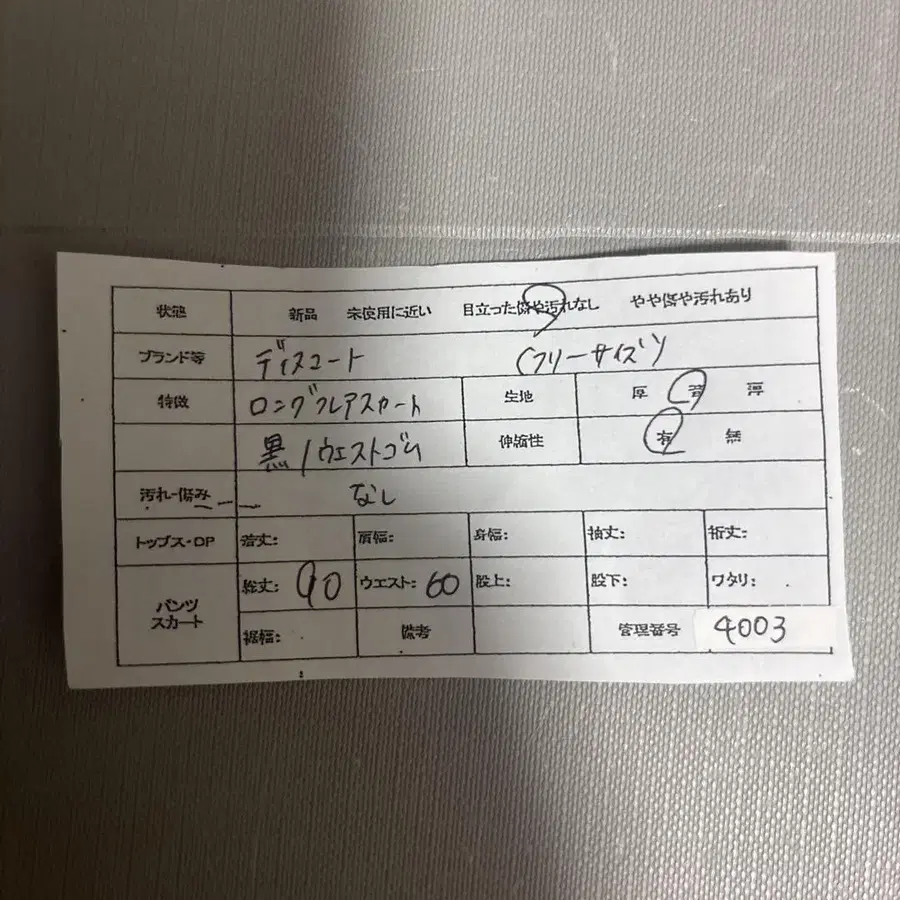 状態 新品 未使用に近い 目立った傷や汚れなし やや傷や汚れあり
ブランド等 ディスコート (フリーサイズ)
特徴 ロングフレアスカート 生地 厚 普 薄
黒/ウエストゴム 伸縮性 有 無
汚れ・傷み なし
トップス・OP 着丈: 肩幅: 身幅: 袖丈: 裄丈:
パンツ スカート 総丈: 90 ウエスト: 60 股上: 股下: ワタリ:
裾幅: 備考 管理番号 4003